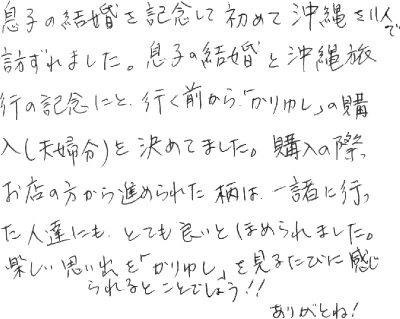 息子の結婚を記念して初めて沖縄を11人で
訪ずれました。息子の結婚と沖縄旅
行の記念にと、行く前から「かりゆし」の購
入(夫婦分)を決めてました。購入の際、
お店の方から進められた柄は、一諸に行っ
た人達にも、とても良いとほめられました。
楽しい思い出を「かりゆし」を見るたびに感じ
られることでしょう!!
ありがとね!